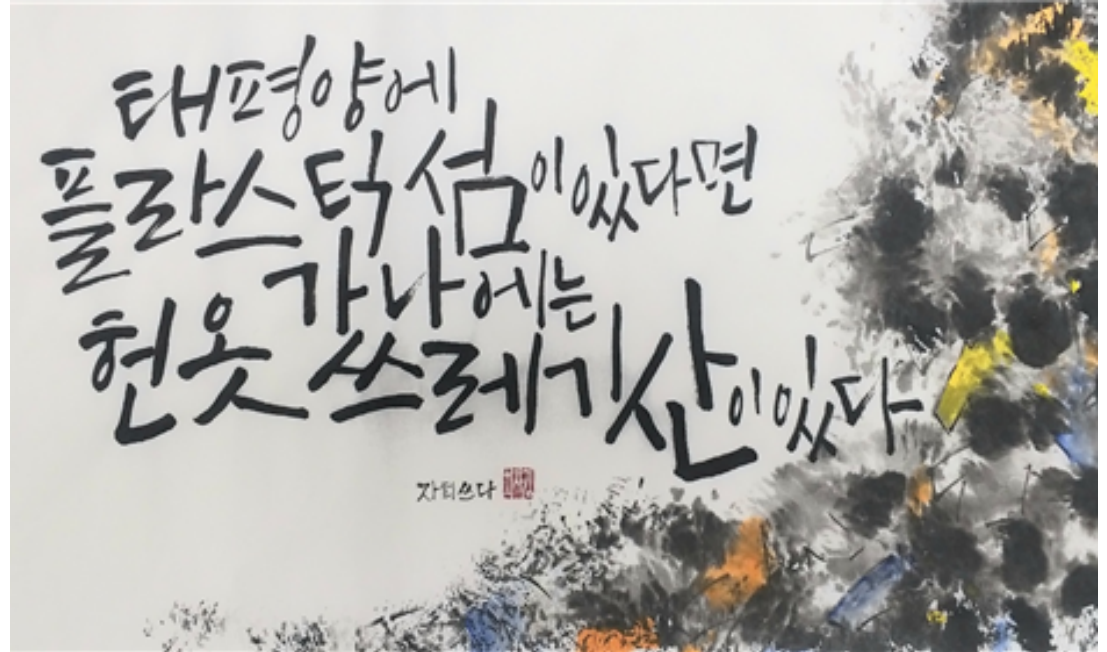 태평양에
플라스틱 섬이 있다면
가나에는
헌옷 쓰레기 산이 있다